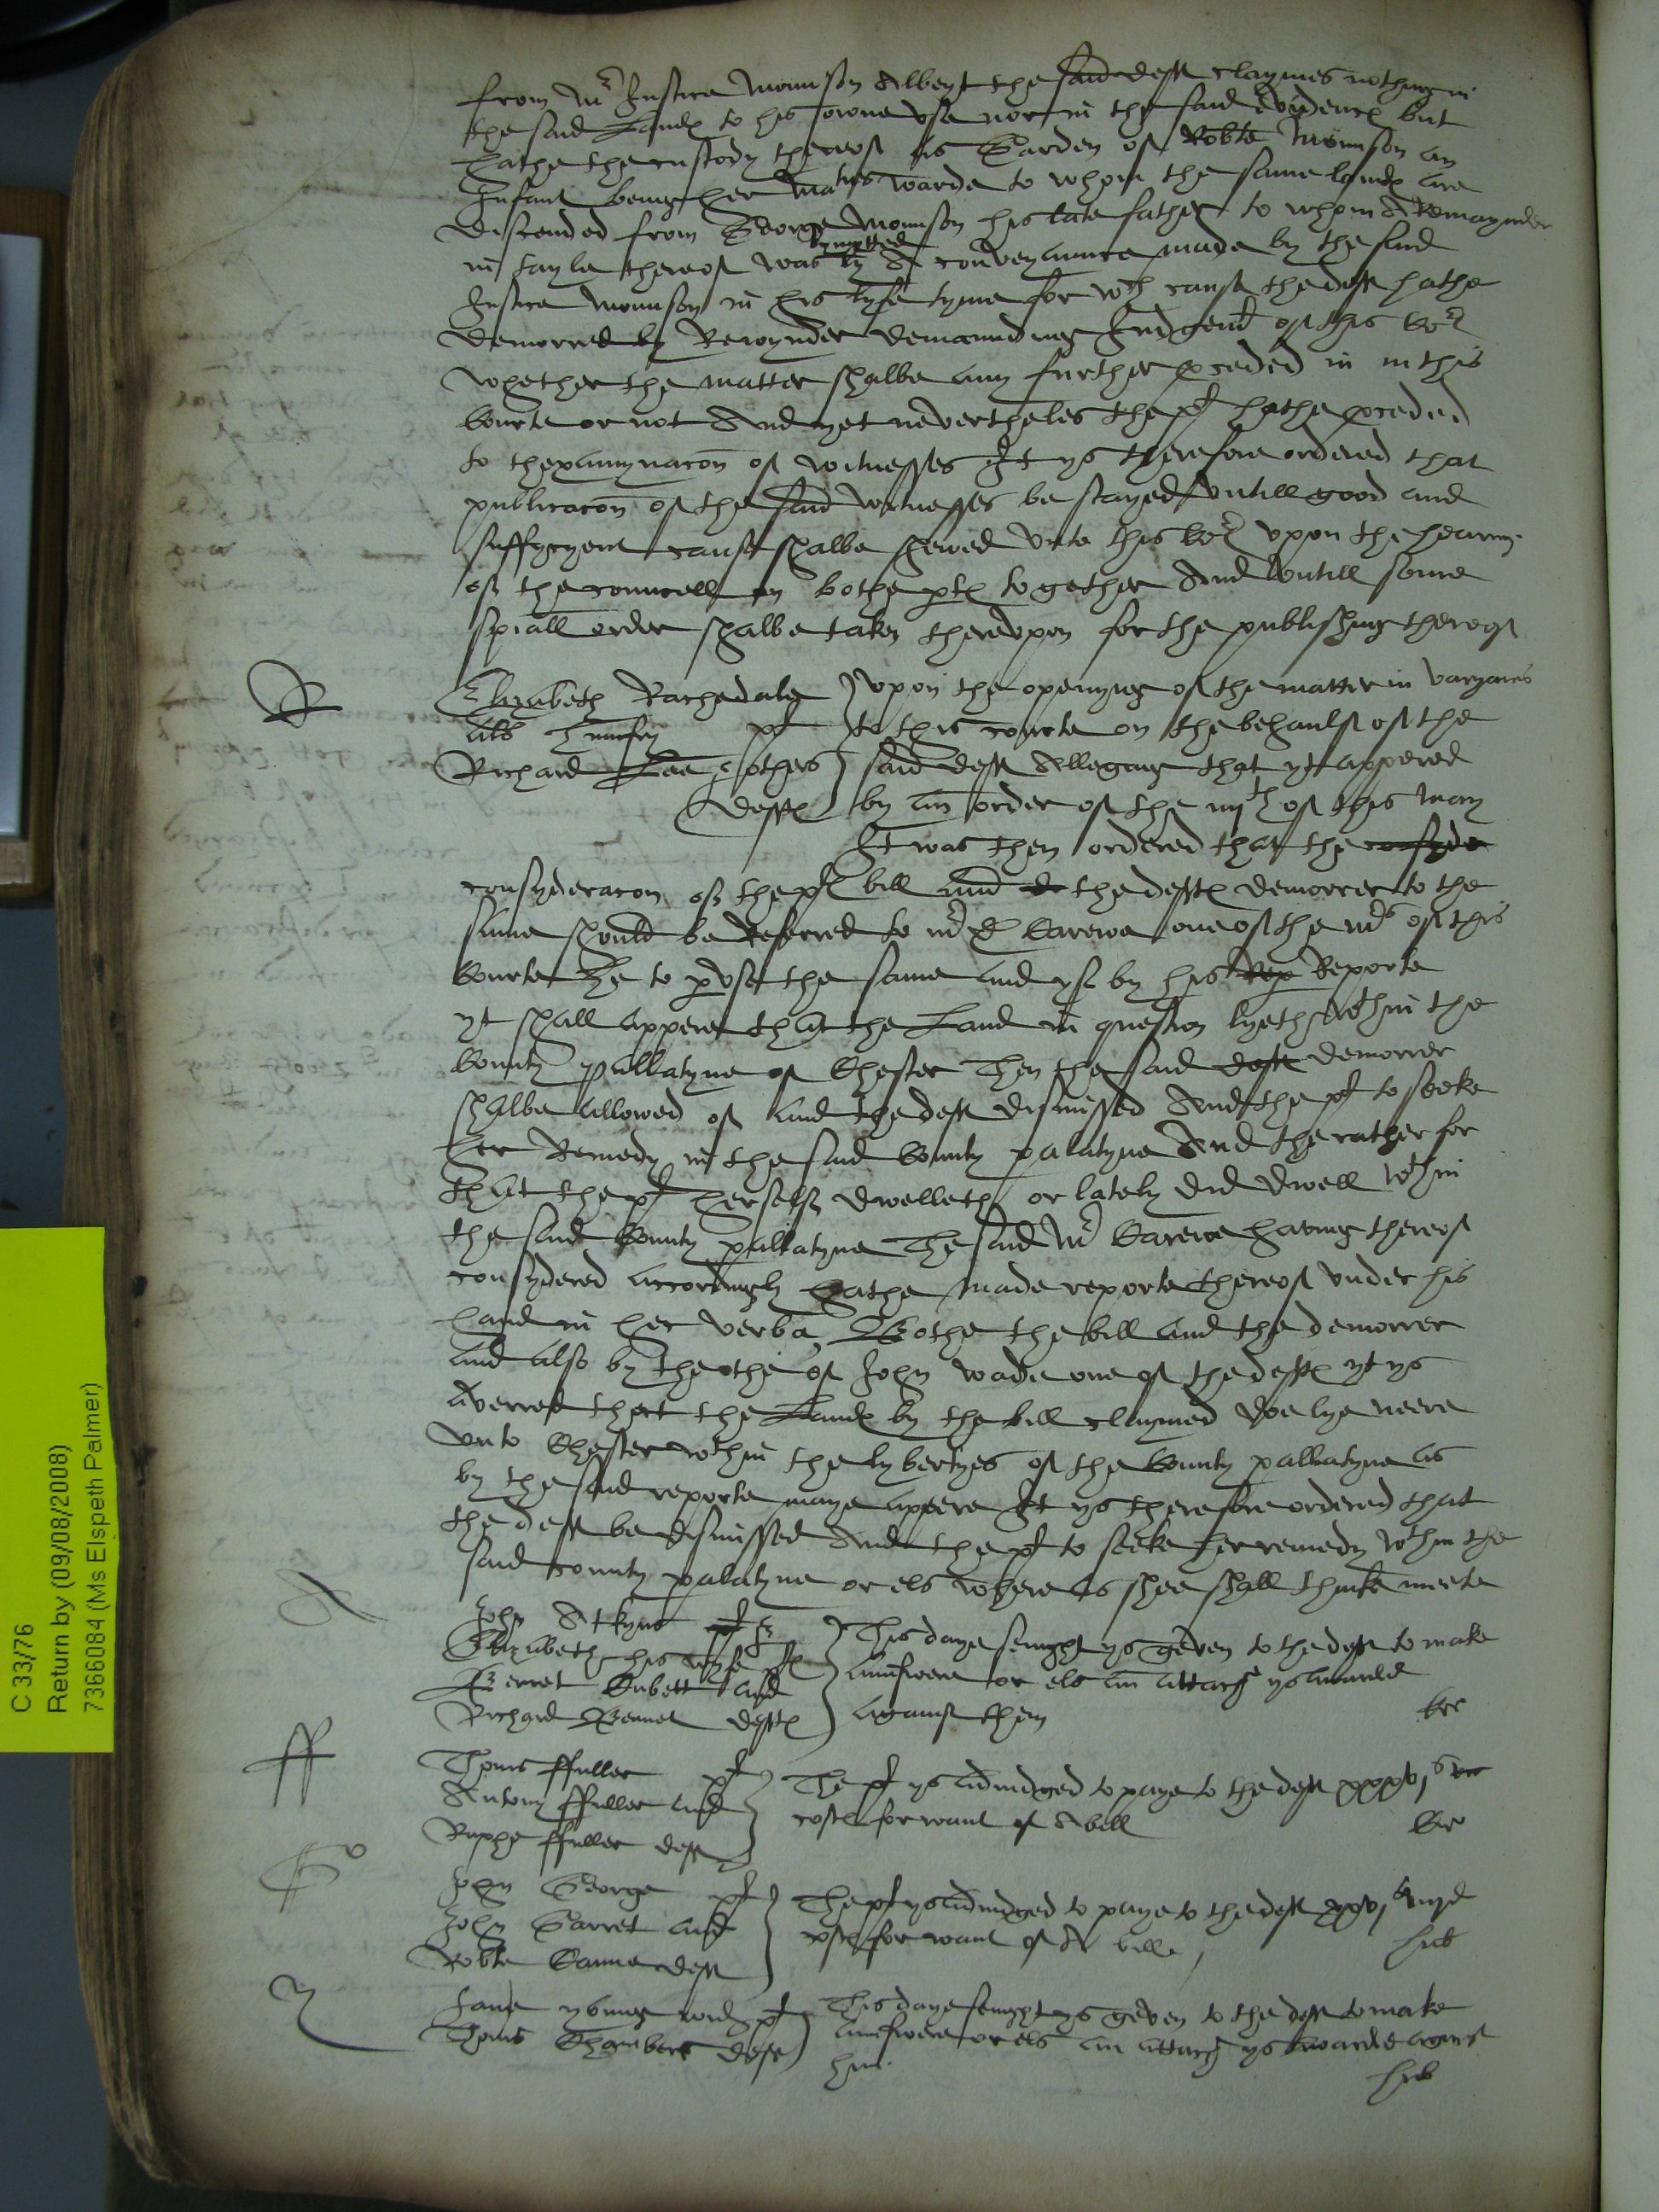 from Mr Justice Mounson Albeyt the said deft claymes nothing in
the said Lands to his owne use nor in the said evidence but
hathe the custody thereof as Garden of Robte Mounson an
Infant being her Mats warde to whom the same lands are
discended from George Mounson his late father to whom A Remaynder
in tayle thereof was lymytted by A conveyaunce made by the said
Justice Mounson in his lyfe tyme for wch cause the deft hathe
demorred by Rejoynder demaunding Judgemt of this Cort
whether the matter shalbe any further pceded in in this
Courte or not And yet nevertheles the plt hathe pceded
to thexamynacon of witnesses It ys therefore ordered that
publicacon of the said witnesses be stayed untill good and
suffycyent cause shalbe shewed unto this Cort upon the hearing
of the councell on bothe pts together And untill some
spiall order shalbe taken thereupon for the publishing thereof
R
Elizabeth Rachedale
als plt
Richard Lee & others
defts
upon the openyng of the matter in varyance
to this courte on the behaulf of the
said deft Alleging that yt appered
by an order of the iiijth of this May
It was then ordered that the consyde
consyderacon of the plts bill and de the defts demorrer to the
same should be Referred to mr D Carewe one of the mrs of this
Courte He to pvse the same and yf by his Rep Reporte
yt shall appere that the Land in question lyeth wthin the
County pallatyne of Chester Then the said deft demorrer
shalbe allowed of and the deft dismissed And the plt to seeke
her Remedy in the said County palatyne And the rather for
that the plt herself dwelleth or lately did dwell wthin
the said County pallatyne The said Mr Carewe having thereof
consydered accordingly hathe made reporte thereof under his
hand in hec verba Bothe the bill and the demorrer
and also by the othe of John Wade one of the defts yt ys
averred that the Lands by the bill claymed doe lye neere
unto Chester wthin the lybertyes of the County pallatyne as
by the said reporte maye appere It ys therefore ordered that
the deft be dismissed And the plt to seeke her remedy wthin the
said county palatyne or els where as shee shall thinke meete
A
John Atkyns plt &
Elizabeth his wyfe plts
and
Richard defts
This daye senight ys geven to the deft to make
aunswere or els an attach ys awarded
against them
ff
Thoms ffuller plt
Antony ffuller and
Raphe ffuller deft
The plt ys adiudged to paye to the deft
costs for want of A bill
G
John George plt
John Garret and
Robte deft
The plt ys adiudged to paye to the deft
costs for want of A bille
Y
Jane Yonug wid plt
Thoms Chamber deft
This daye senight ys geven to the deft to make
aunswere or els an attach ys awarde against
him
C 33/76
Return by (09/08/2008)
7366084 (Ms Elspeth Palmer)